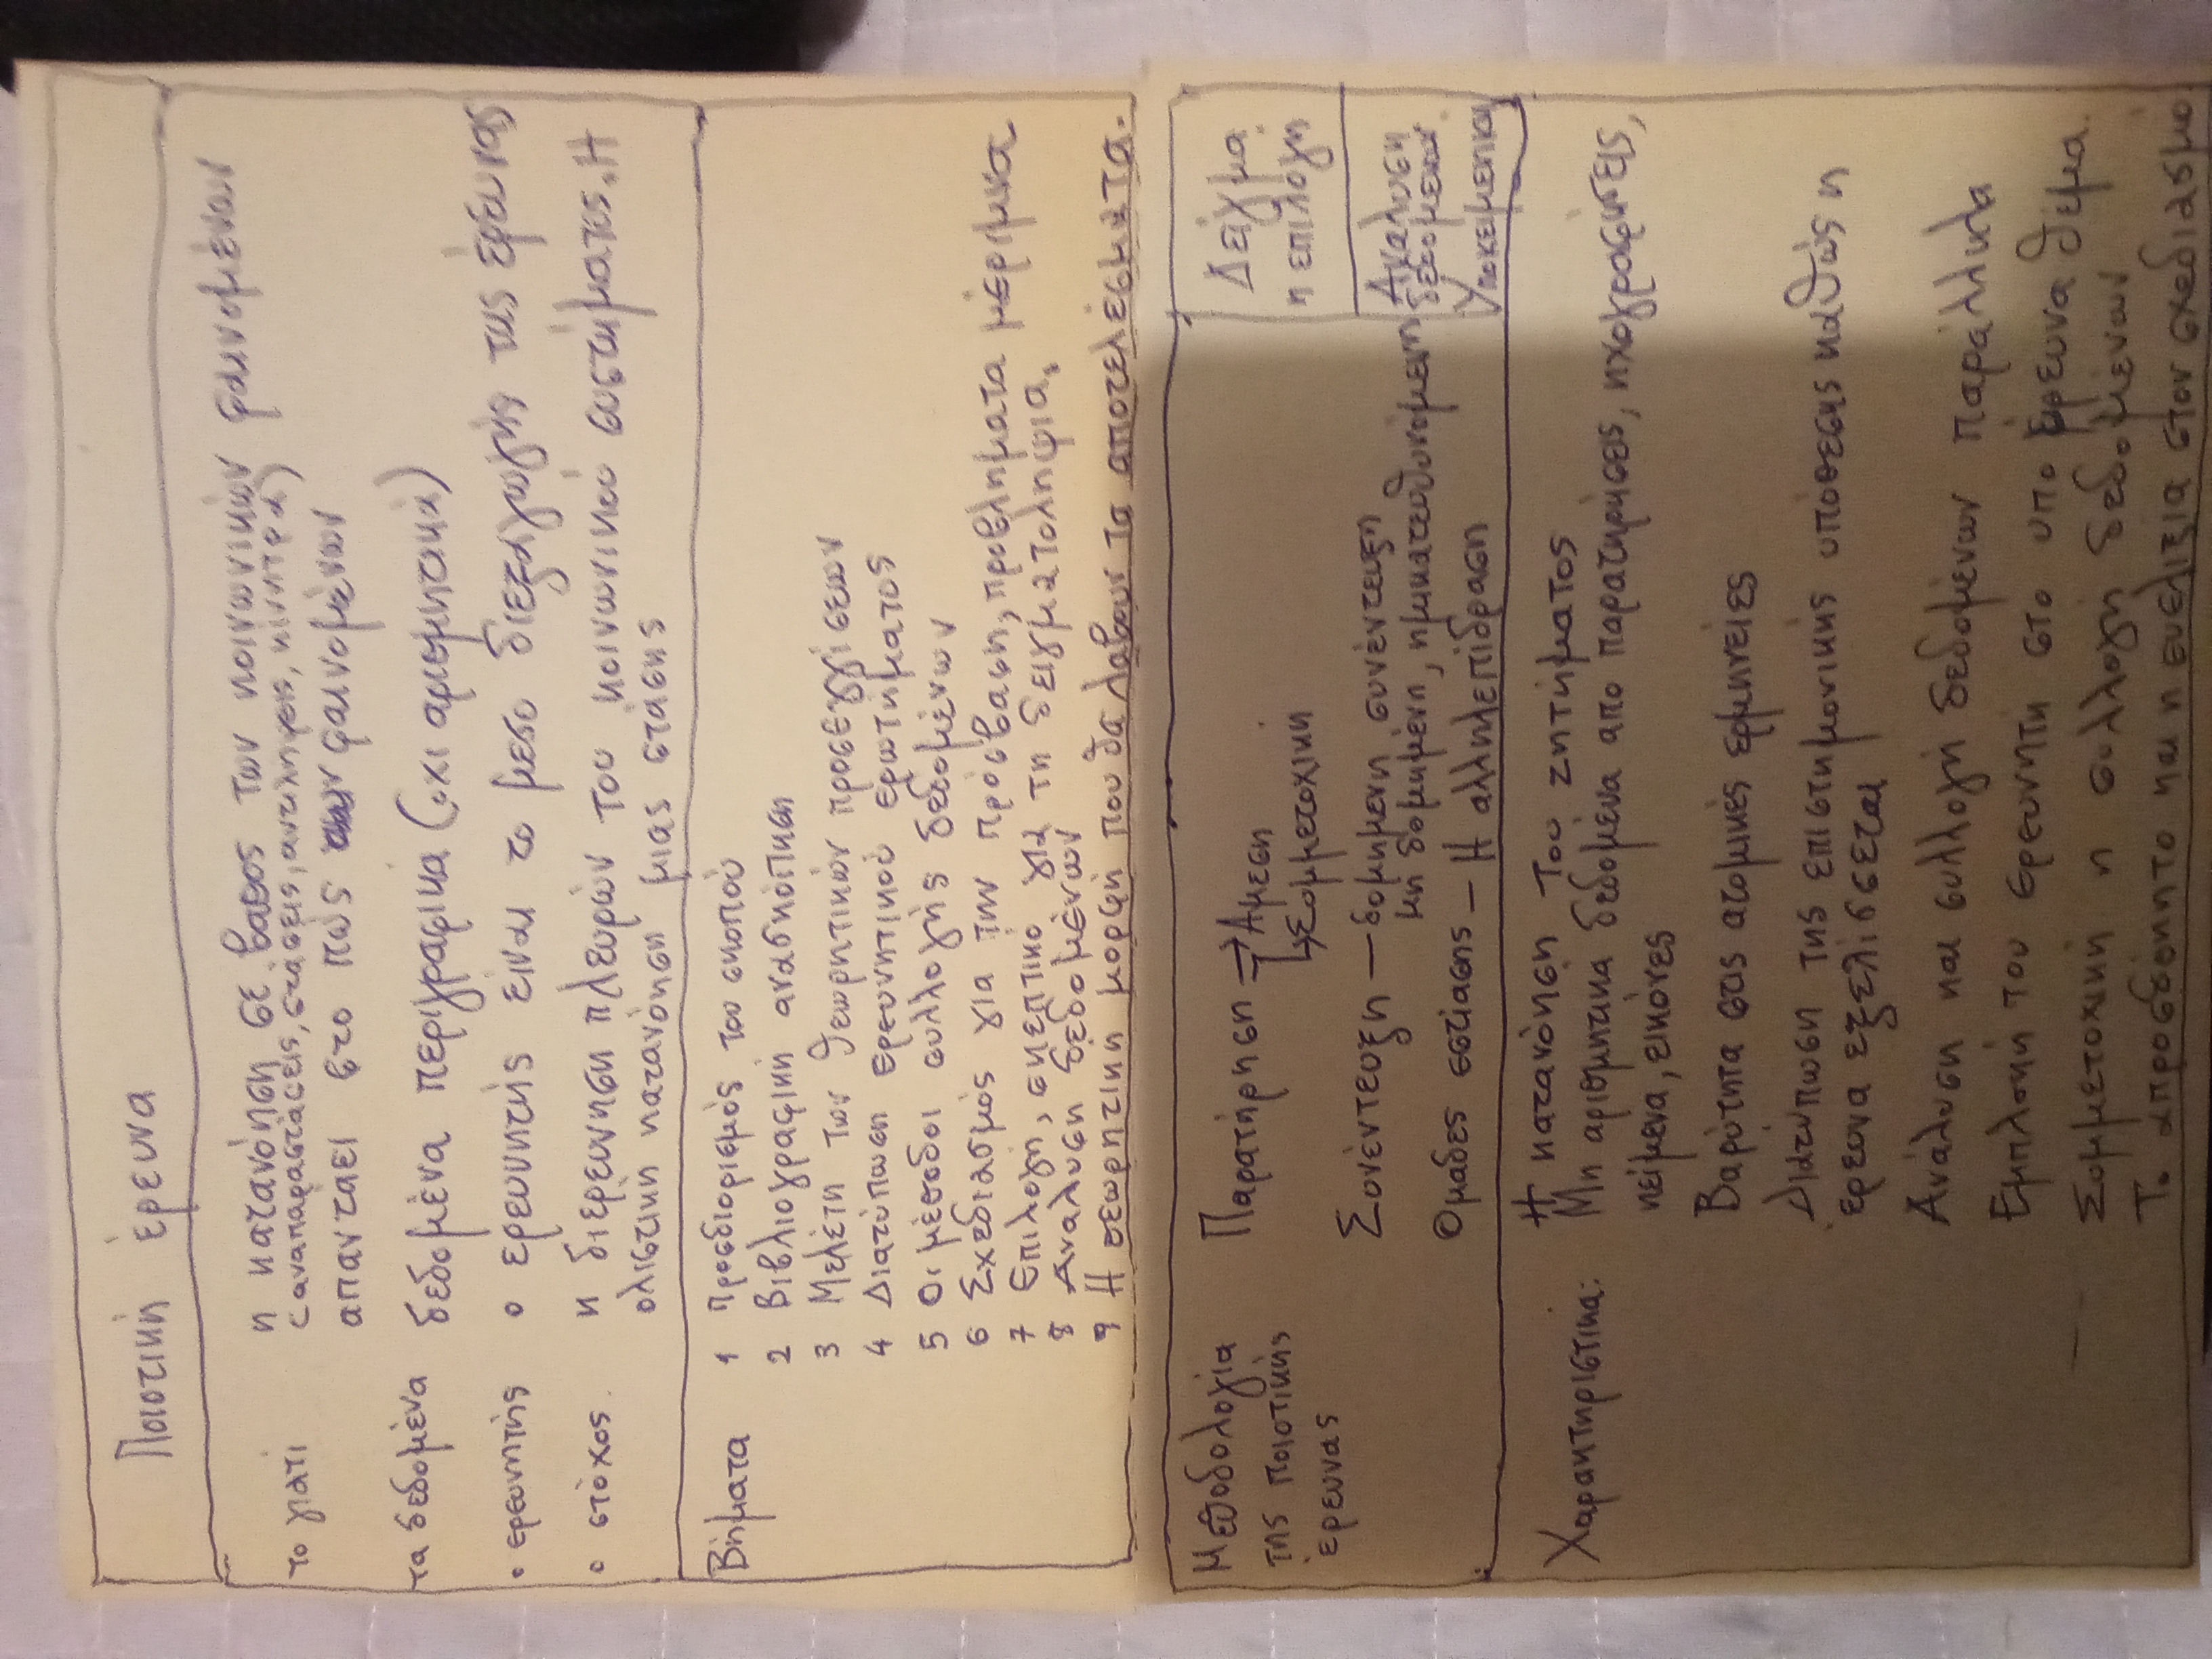 Ποιοτική έρευνα
το γιατί η κατανόηση σε βαθος των κοινωνικών φαινομένων
(αναπαραστάσεις, στάσεις, αντιλήψεις, κίνητρα)
απανταει στο πώς των φαινομένων
τα δεδομένα δεδομένα περιγραφικα (οχι αριθμητικά)
ο ερευνητής ο ερευνητής ειναι το μεσο διεξαγωγής της έρευνας
ο στόχος. η διερευνηση πλευρών του κοινωνικού συστήματος. Η
ολιστικη κατανόηση μιας στάσης
Βήματα 1 προσδιορισμός του σκοπού
2 βιβλιογραφική ανασκόπηση
3 Μελέτη των θεωρητικών προσεγγίσεων
4 Διατύπωση ερευνητικού ερωτήματος
5 Οι μέθοδοι συλλογής δεδομένων
6 Σχεδιασμός για την πρόσβαση, προβλήματα μέριμνα
7 Επιλογή, σκεπτικό για τη δειγματοληψια.
8 Αναλυση δεδομένων
9 Η θεωρητικη μορφή που θα λαβουν τα αποτελέσματα.
Μεθοδολογία
της ποιοτικής
έρευνας
Παρατήρηση → Άμεση
↳ Συμμετοχικη
Συνέντευξη — δομημενη συνέντευξη
μη δομημένη, ημικατευθυνόμενη
Ομαδες εστίασης — Η αλληλεπίδραση
Δείγμα
η επιλογη
Αναλυση
δεδομενων.
Υποκειμενικη
Χαρακτηριστικα: Η κατανόηση του ζητήματος
Μη αριθμητικα δεδομένα απο παρατηρήσεις, ηχογραφήσεις,
κείμενα, εικόνες
Βαρύτητα στις ατομικές ερμηνείες
Διατύπωση της επιστημονικής υπόθεσης καθώς η
έρευνα εξελίσσεται
Ανάλυση και συλλογή δεδομένων παράλληλα
Εμπλοκή του ερευνητή στο υπο έρευνα θέμα.
Συμμετοχική η συλλογή δεδομένων
Τ. απροσδόκητο και η ευελιξία στον σχεδιασμο